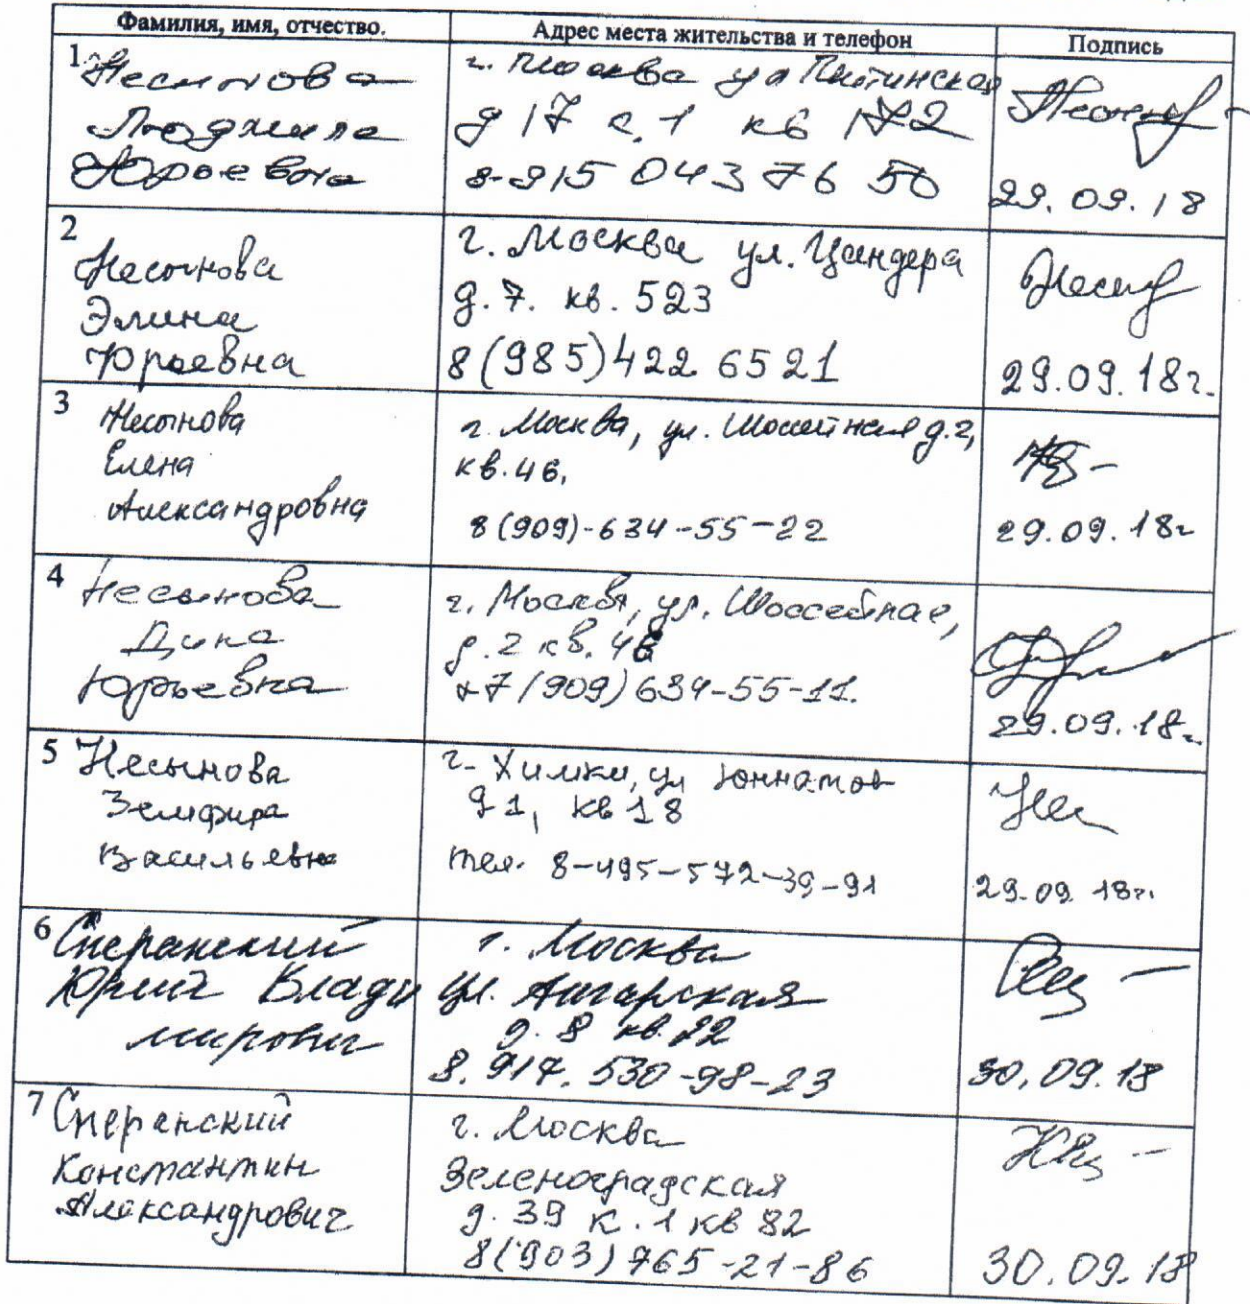 Фамилия, имя, отчество.
Адрес места жительства и телефон
Подпись
1. Несынова
Людмила
Юрьевна
г. Москва ул
д 17 с. 1 кв 172
8-915 043 76 50
29.09.18
2
Несынова
Элина
Юрьевна
г. Москва ул. Цандера
д. 7. кв. 523
8(985)422 6521
29.09.18г.
3
Несынова
Елена
Александровна
г. Москва, ул. Шоссейная д.2,
кв. 46,
8(909)-634-55-22
29.09.18г
4
Несынова
Дина
Юрьевна
г. Москва, ул. Шоссейная,
д. 2 кв. 46
+7(909)634-55-11.
29.09.18г.
5 Несынова
Земфира
Васильевна
г. Химки, ул Юннатов
д 1, кв 18
тел. 8-495-572-39-91
29.09.18г.
6 Сперанский
Юрий Влади
мирович
г. Москва
ул. Ангарская
д. 8 кв. 22
8. 917. 530-98-23
30.09.18
7 Сперанский
Константин
Александрович
г. Москва
Зеленоградская
д. 39 к. 1 кв 82
8(903)765-21-86
30.09.18